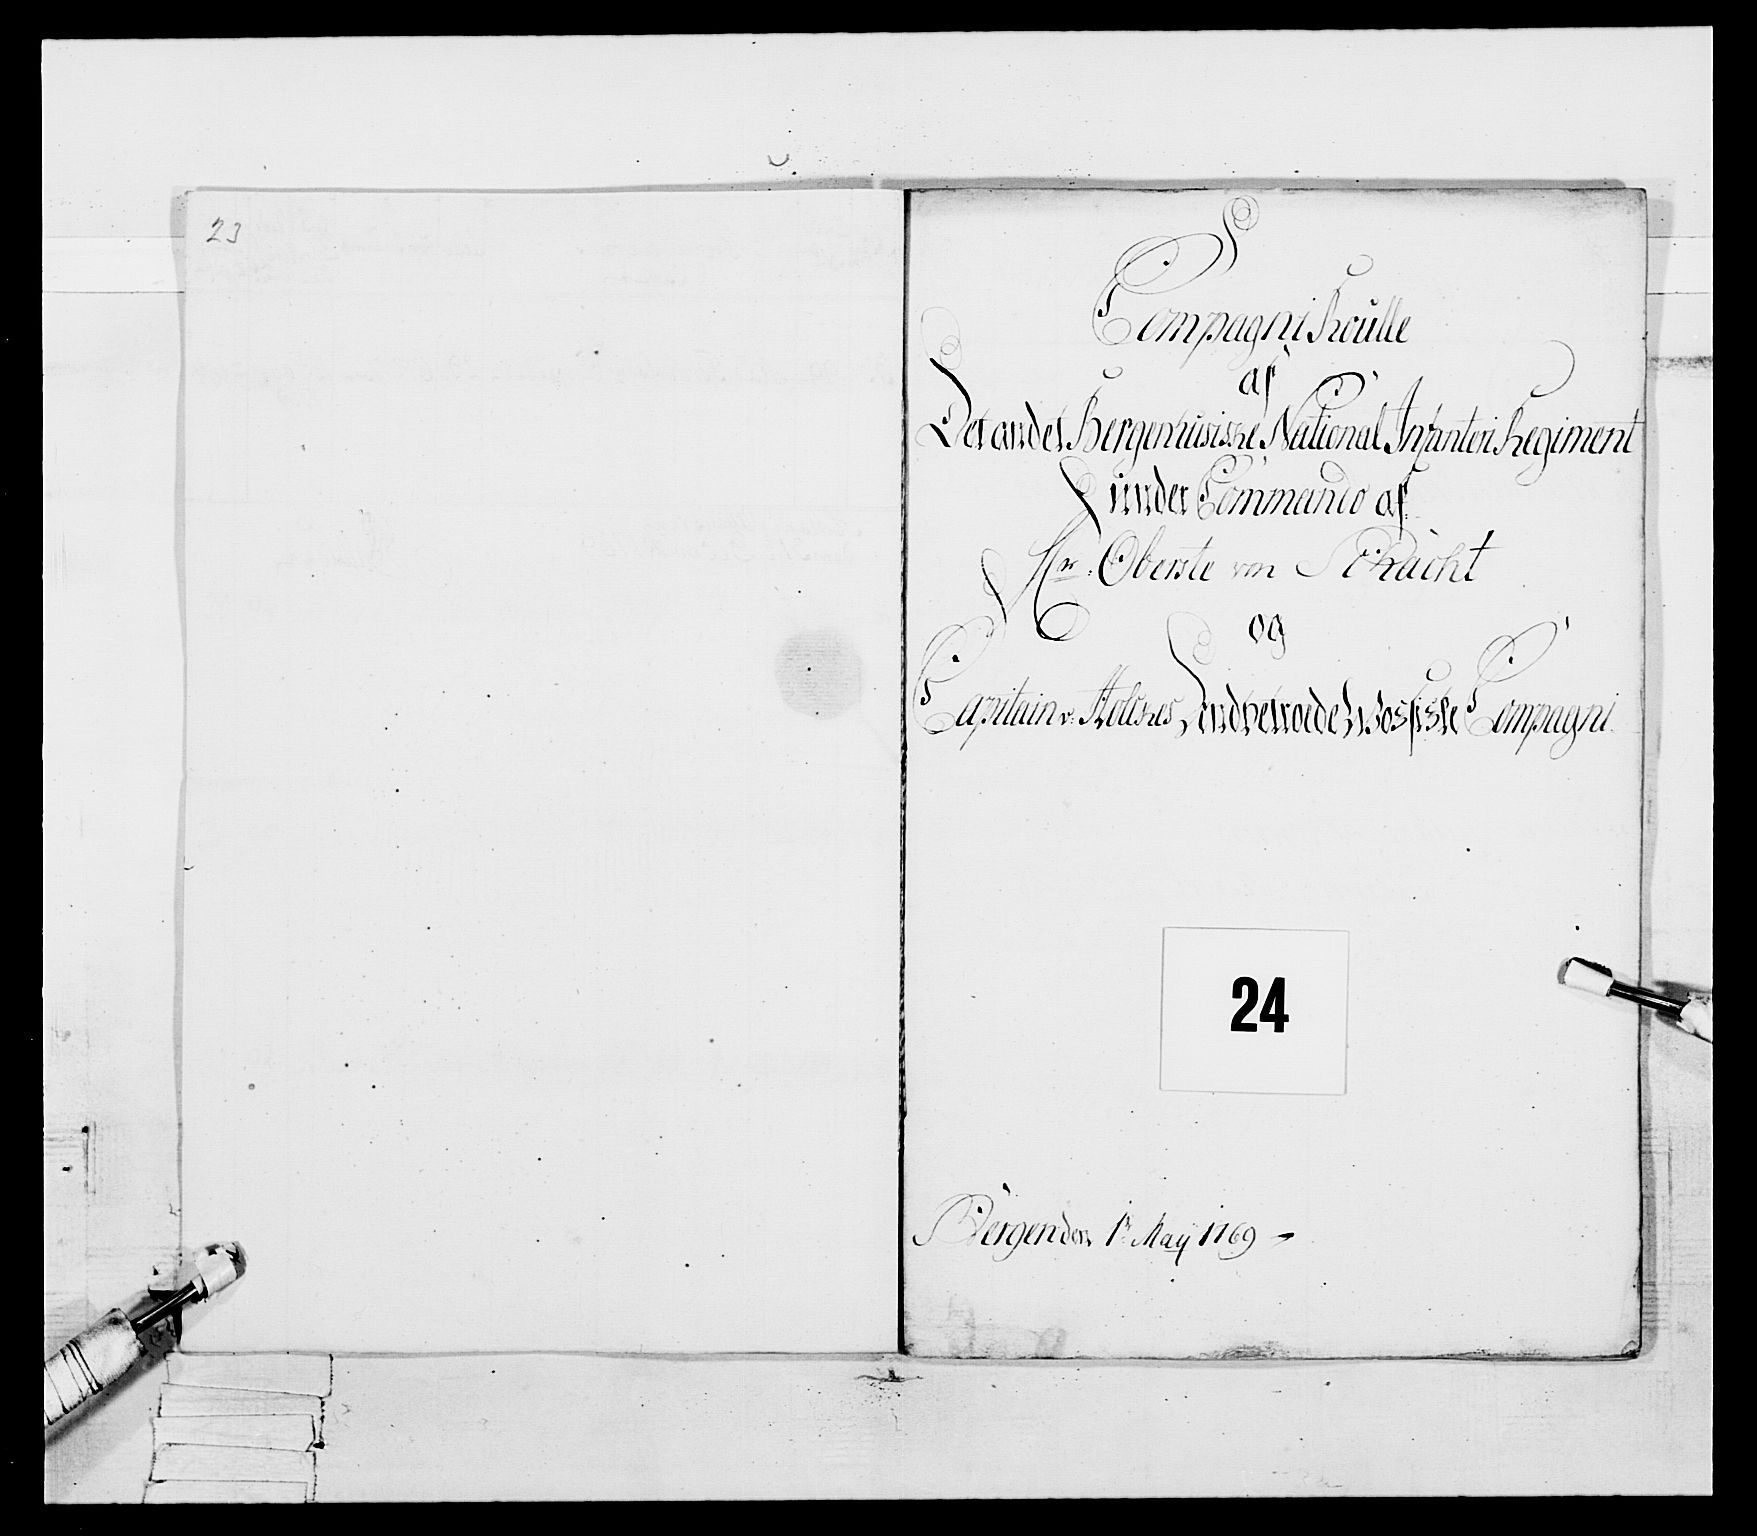 23
Compagni Roulle
af
Det andet Bergenhusiske National Infanteri Regiment
under Commando af
Hr: Oberste von
og
Capitain v: Compagni
24
Bergen den 1te May 1769